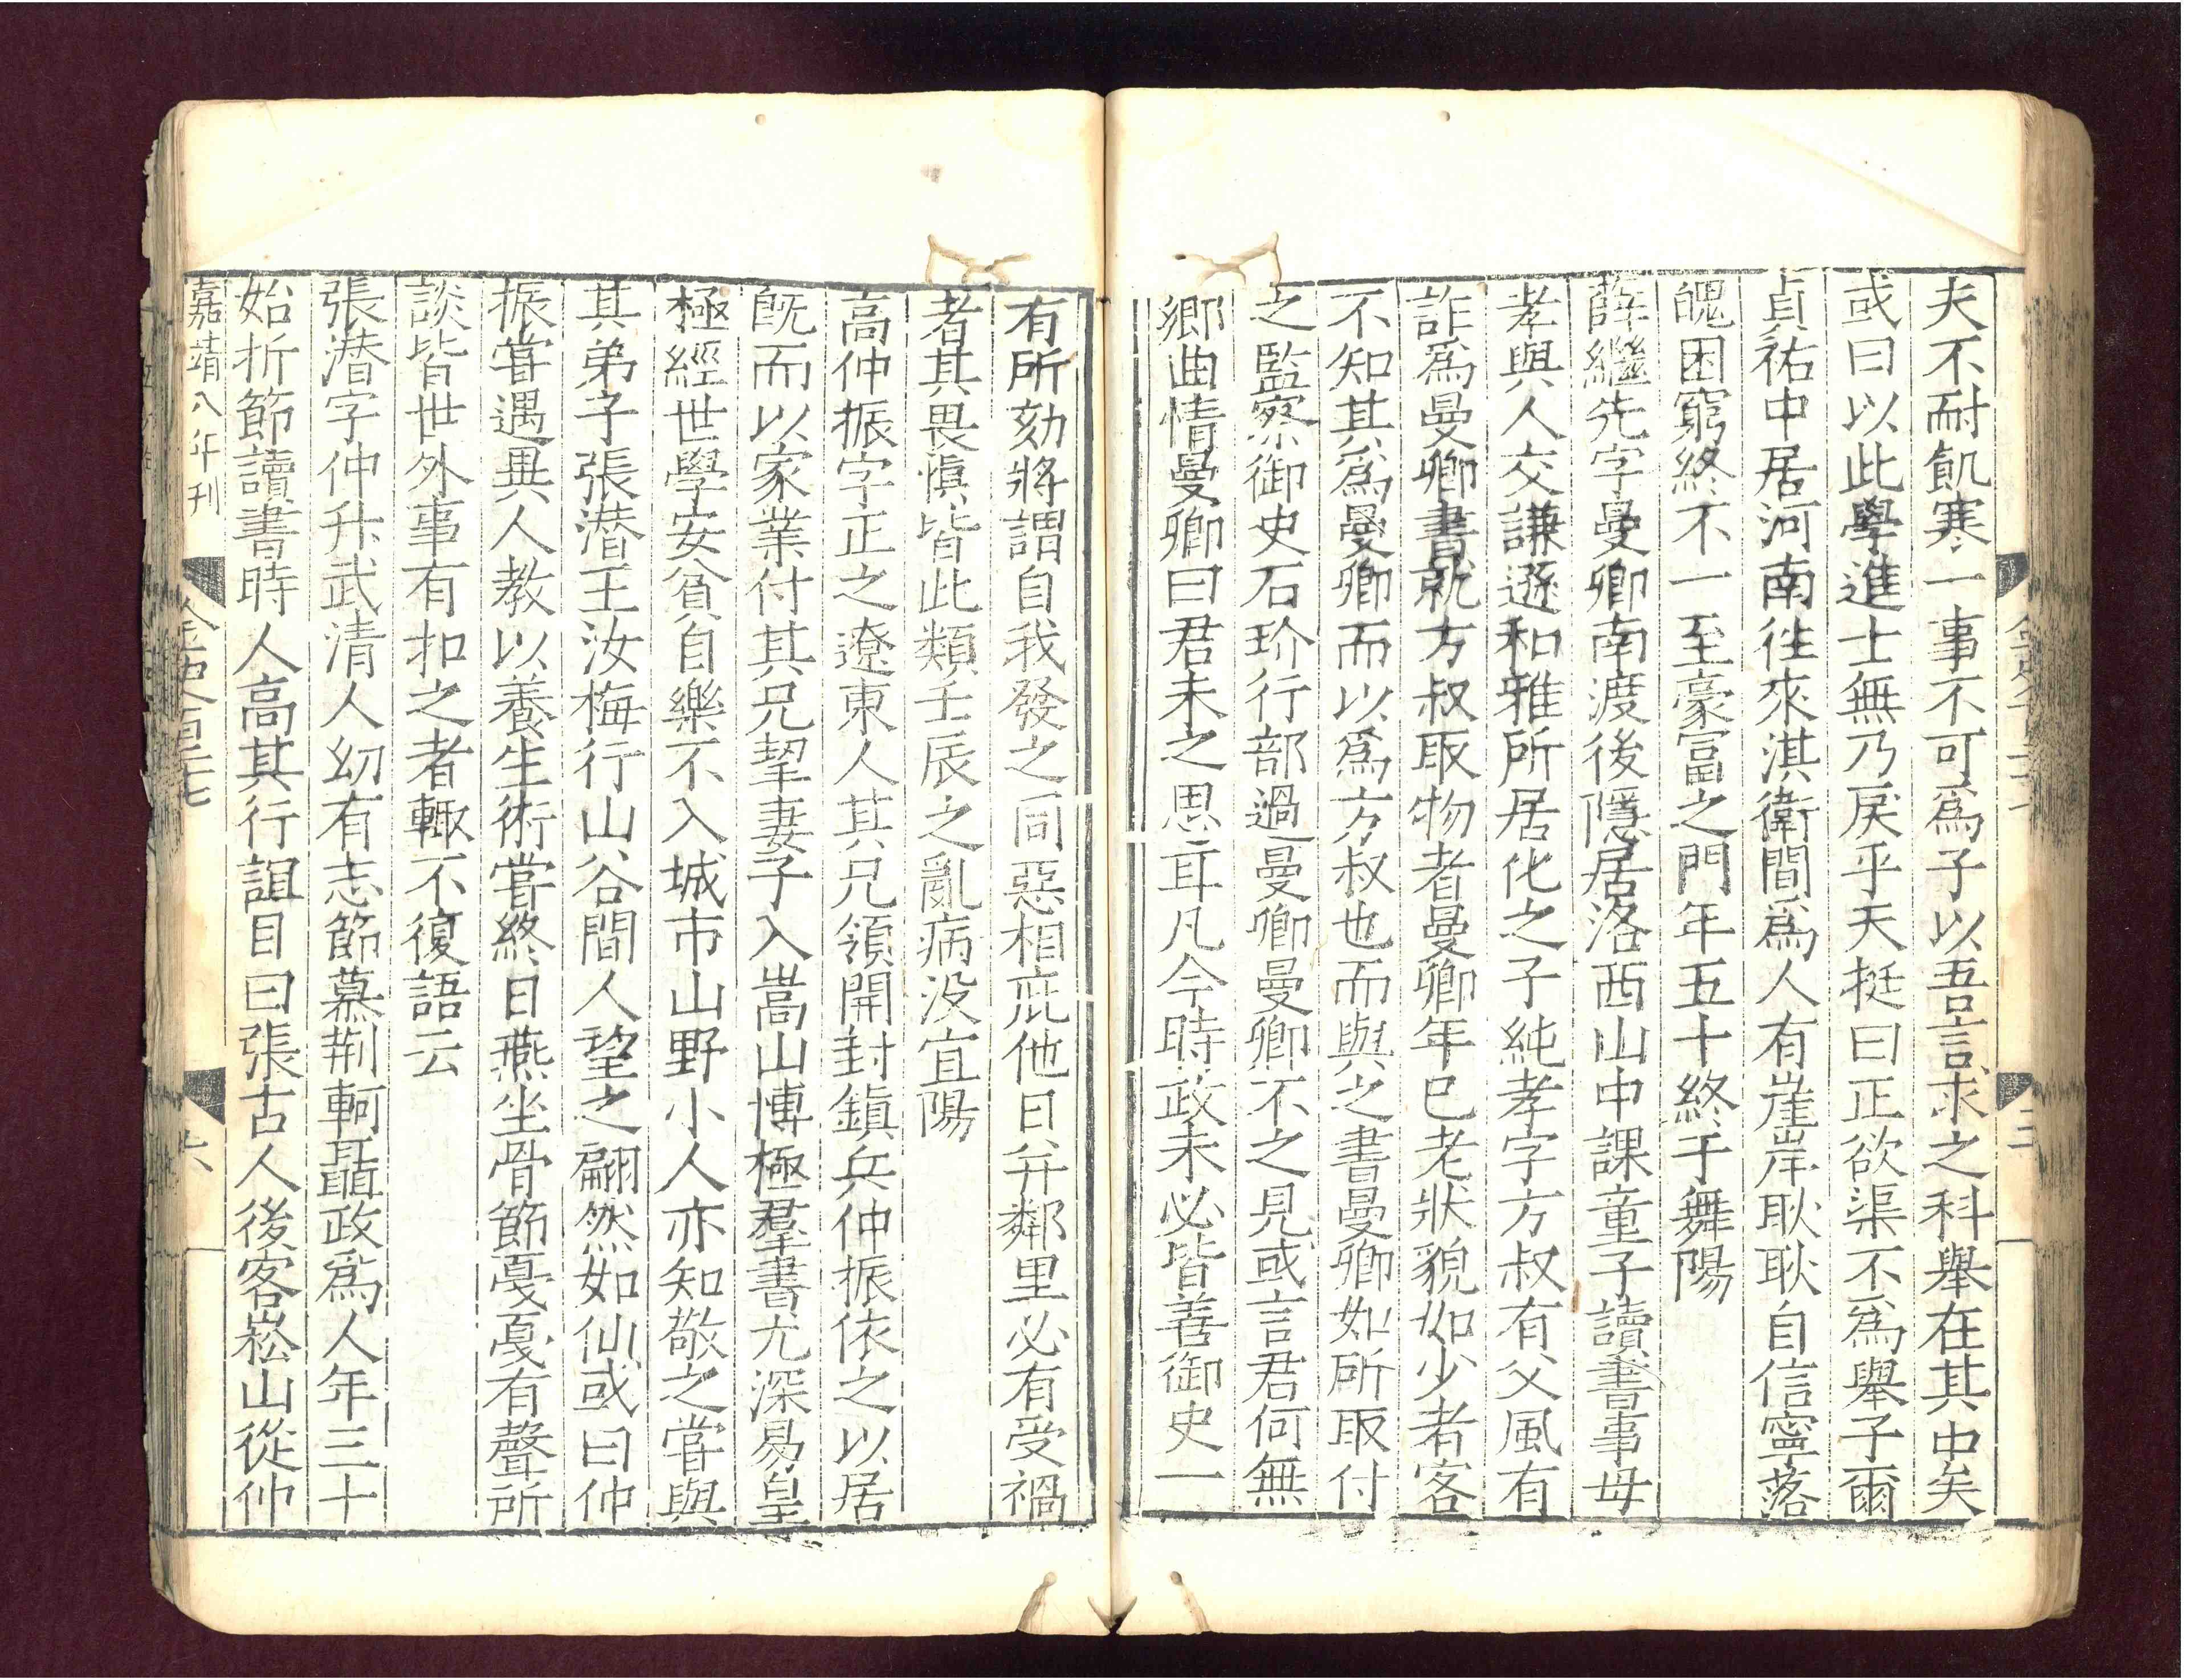 夫不耐飢寒一事不可爲子以吾言求之科舉在其中矣
或曰以此學進士無乃戾乎天挺曰正欲渠不爲舉子爾
貞祐中居河南徃來淇衛間爲人有崖岸耿耿自信寧落
魄困窮終不一至豪富之門年五十終于舞陽
薛繼先字曼卿南渡後隱居洛西山中課童子讀書事母
孝與人交謙遜和雅所居化之子純孝字方叔有父風有
詐爲曼卿書就方叔取物者曼卿年已老狀貌如少者客
不知其爲曼卿而以爲方叔也而與之書曼卿如所取付
之監察御史石玠行部過曼卿曼卿不之見或言君何無
鄉曲情曼卿曰君未之思耳凡今時政未必皆善御史一
有所劾將謂自我發之同惡相庇他日并鄰里必有受禍
者其畏慎皆此類壬辰之亂病没宜陽
高仲振字正之遼東人其兄領開封鎮兵仲振依之以居
旣而以家業付其兄挈妻子入嵩山博極羣書尤深易皇
極經世學安貧自樂不入城市山野小人亦知敬之嘗與
其弟子張潛王汝梅行山谷間人望之翩然如仙或曰仲
振嘗遇異人教以養生術嘗終日燕坐骨節戛戛有聲所
談皆世外事有扣之者輙不復語云
張潛字仲升武清人幼有志節慕荆軻聶政爲人年三十
始折節讀書時人高其行誼目曰張古人後客崧山從仲
嘉靖八年刊
金史百二七
六